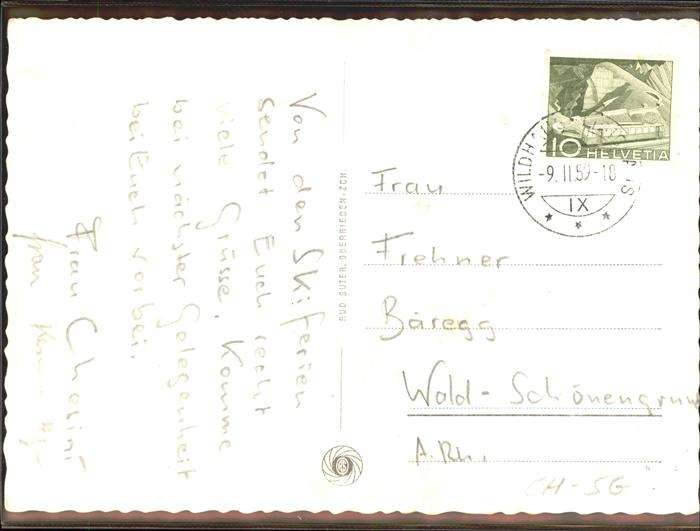 Von den Skiferien
sendet Euch recht
viele Grüsse. Komme
bei nächster Gelegenheit
bei Euch vorbei.
Frau Chosini
Frau
RUD. SUTER, OBERRIEDEN-ZCH.
10 HELVETIA
WILDHAUS
-9. II. 59-18
IX
Frau
Frehner
Bäregg
Wald - Schönengrun
A. Rh.
CH-SG